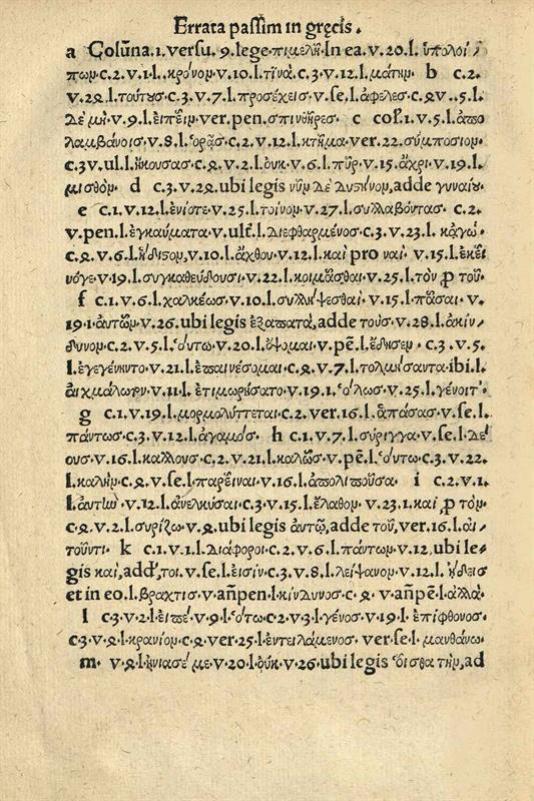 Errata passim in gręcis.
a Colũna.1.versu.9.lege πιμελή. In ea.v.20.l. ὑπολοί/
πωμ.c.2.v.1.l.κρόνομ.v.10.l.τίνά.c.3.v.12.l.μάτημ. b c.2.
v.22.l.τούτους.c.3.v.7.l.προσέχεις.v.se.l.ἀφελες.c.4.v.5.l.
δέ μὴ.v.9.l.εἰπεῖμ. ver.pen.σπινθῆρες. c col.1.v.5.l.ἀπο
λαμβάνοις.v.8.l.ὁρᾷς.c.2.v.12.l.κτῆμα.ver.22.σύμποσιομ.
c.3.v.ul.l.ἤκουσας.c.4.v.2.l.οὐκ.v.6.l.πῦρ.v.15.ἄχρι.v.19.l.
μισθόμ. d c.3.v.24.ubi legis νῦμ δὲ δύστηνομ, adde γυναίκ
e c.1.v.12.l.ἐνίοτε.v.25.l.τοίνομ.v.27.l.συλλαβόντας. c.2.
v.pen.l.ἐγκαύματα.v.ult.l.διεφθαρμένος.c.3.v.23.l. κᾀγώ.
c.4.v.6.l.ἥδιστομ,v.10.l.ἄχθου.v.12.l.καὶ pro ναὶ. v.15.l.ἐκεῖ
νόγε.v.19.l.συγκαθεύδουσι.v.22.l.κοιμᾶσθαι.v.25.l.τὸν ꝓ τοῦ.
f c.1.v.6.l.χαλκέως.v.10.l.συλλήψεσθαί.v.15.l.πᾶσαι.v.
19.l.ἀυτῶμ.v.26.ubi legis ἐξαπατᾷ, adde τοὺς.v.28.l.ἀκίν/
δυνομ.c.2.v.5.l.ὅυτω.v.20.l.ὄψομαι.v.pẽ.l.ἔδησεμ. c.3.v.5.
l.ἐγεγένητο.v.21.l.ἐπαινέσομαι.c.4.v.7.l.τολμήσαντα.ibi.l.
ἀιχμάλωτμ.v.11.l.ἐτιμωρήσατο.v.19.l.ὅλως.v.25.l.γένοιτ'.
g c.1.v.19.l.μορμολύττεται.c.2.ver.16.l.ἁπάσας.v.se.l.
πάντως.c.3.v.12.l.ἀγαμός. h c.1.v.7.l.σύριγγα.v.se.l.δέ
ους.v.16.l.κάλλους.c.2.v.21.l.καλῶς.v.pẽ.l.ὅυτω.c.3.v.22.
l.καλήμ.c.4.v.se.l.παρεῖναι.v.16.l.ἀπολιποῦσα. i c.2.v.1.
l.ἀυτῷ.v.12.l.ἀνελκῦσαι.c.3.v.15.l.ἔλαθομ.v.23.l.καὶ ꝓ τὸμ.
c.4.v.2.l.συρίζω.v.4.ubi legis ἀυτῷ, adde τοῦ, ver.16.l.ἁι/
τοῦντι. k c.1.v.1.l.διάφοροι.c.2.v.6.l.πάντωμ.v.12.ubi le/
gis καὶ, add, τοι.v.se.l.ἐισίν.c.3.v.8.l.λείψανομ.v.12.l.ἥδεις
et in eo.l.βραχτις.v.añpen.l.κίνδυνος.c.4.v.añpẽ.l.ἀλλὰ.
l c.3.v.2.l.εἰπέ.v.9.l.ὅτω.c.2.v.3.l.γένος.v.19.l.ἐπίφθονος.
c.3.v.4.l.κρανίομ.c.4.ver.25.l.ἐντειλάμενος. ver.se.l.μανθάνω.
m. v.4.l.ἠνίασέ με.v.20.l.οὐκ.v.26.ubi legis ὅισπα τήμ, ad